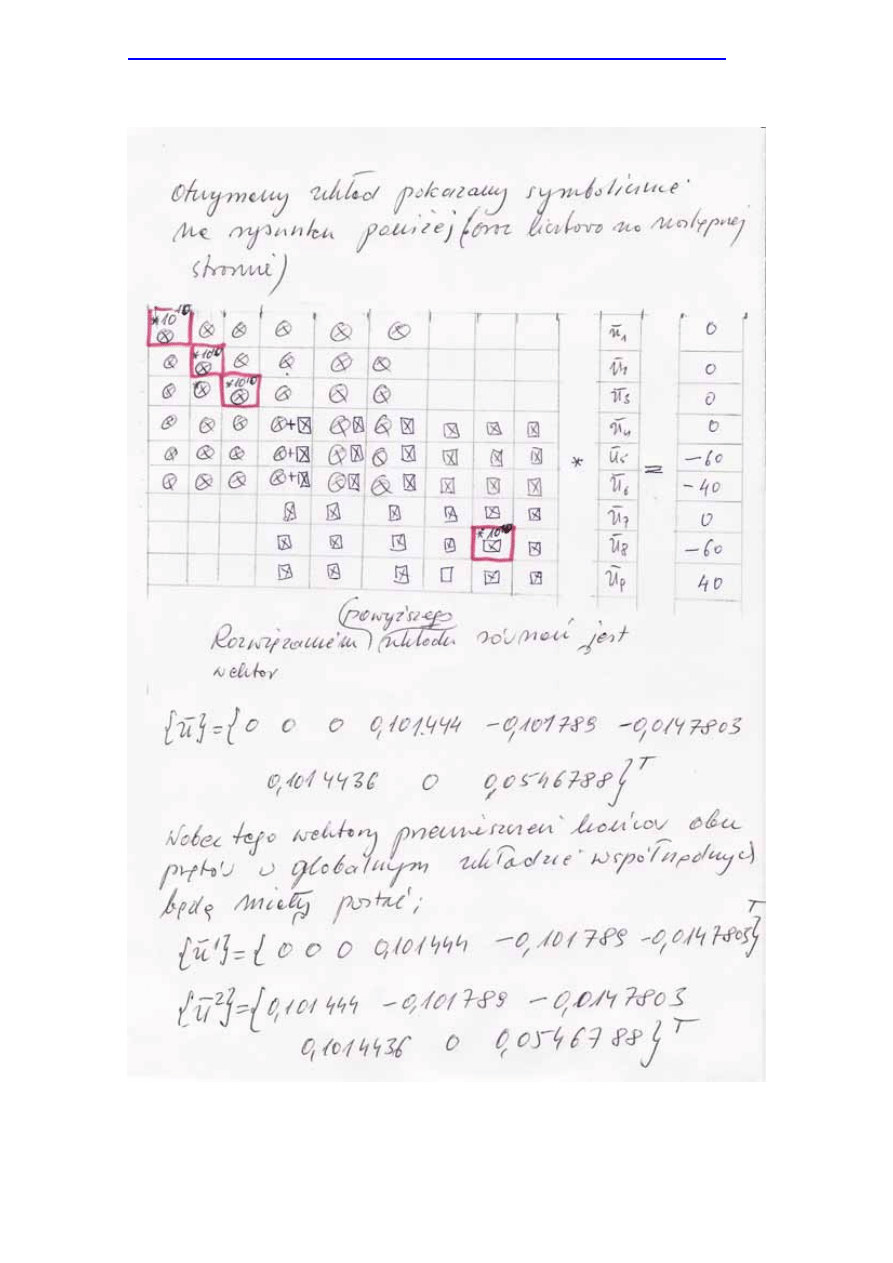 Otrzymany układ pokazany symbolicznie
na rysunku poniżej (oraz liczbowo na następnej
stronie)
*10¹⁰ ⊗ ⊗ ⊗ ⊗ ⊗ ⊗ ū₁ 0
⊗ *10¹⁰ ⊗ ⊗ ⊗ ⊗ ⊗ ū₂ 0
⊗ ⊗ *10¹⁰ ⊗ ⊗ ⊗ ⊗ ū₃ 0
⊗ ⊗ ⊗ ⊗+⊠ ⊗⊠ ⊗⊠ ⊠ ⊠ ⊠ ū₄ 0
⊗ ⊗ ⊗ ⊗+⊠ ⊗⊠ ⊗⊠ ⊠ ⊠ ⊠ * ū₅ = -60
⊗ ⊗ ⊗ ⊗+⊠ ⊗⊠ ⊗⊠ ⊠ ⊠ ⊠ ū₆ -40
⊠ ⊠ ⊠ ⊠ ⊠ ⊠ ū₇ 0
⊠ ⊠ ⊠ ⊠ *10¹⁰ ⊠ ⊠ ū₈ -60
⊠ ⊠ ⊠ □ ⊠ ⊠ ū₉ 40
powyższego
Rozwiązaniem układu równań jest
wektor
{ū}={0 0 0 0,101444 -0,101789 -0,0147803
0,1014436 0 0,0546788}ᵀ
Wobec tego wektory przemieszczeń końców obu
prętów w globalnym układzie współrzędnych
będą miały postać;
{ū¹}={0 0 0 0,101444 -0,101789 -0,0147803}ᵀ
{ū²}={0,101444 -0,101789 -0,0147803
0,1014436 0 0,0546788}ᵀ